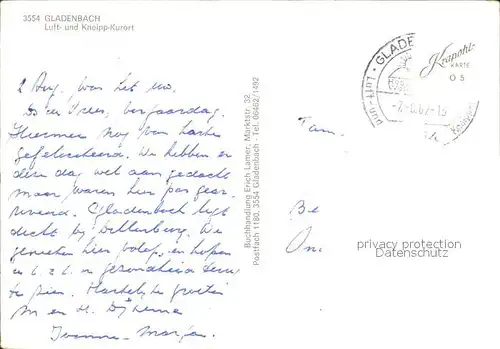 3554 GLADENBACH
Luft- und Kneipp-Kurort
2 Aug. was het uw,
verjaardag.
Hiermee nog van harte
gefeliciteerd. We hebben er
die dag wel aan gedacht
maar waren hier pas gear-
riveerd. Gladenbach ligt
dicht bij Dillenburg. We
genieten hier volop, en hopen
u in gezondheid
te zien. Hartelijke groeten
M en H.
Ivonne - Marja.
Buchhandlung Erich Lamer, Marktstr. 32
Postfach 1180, 3554 Gladenbach - Tel. 06462/1492
GLADE
Luft-
Krapohl-
KARTE
O 5
Fam.
Be
On
privacy protection
Datenschutz